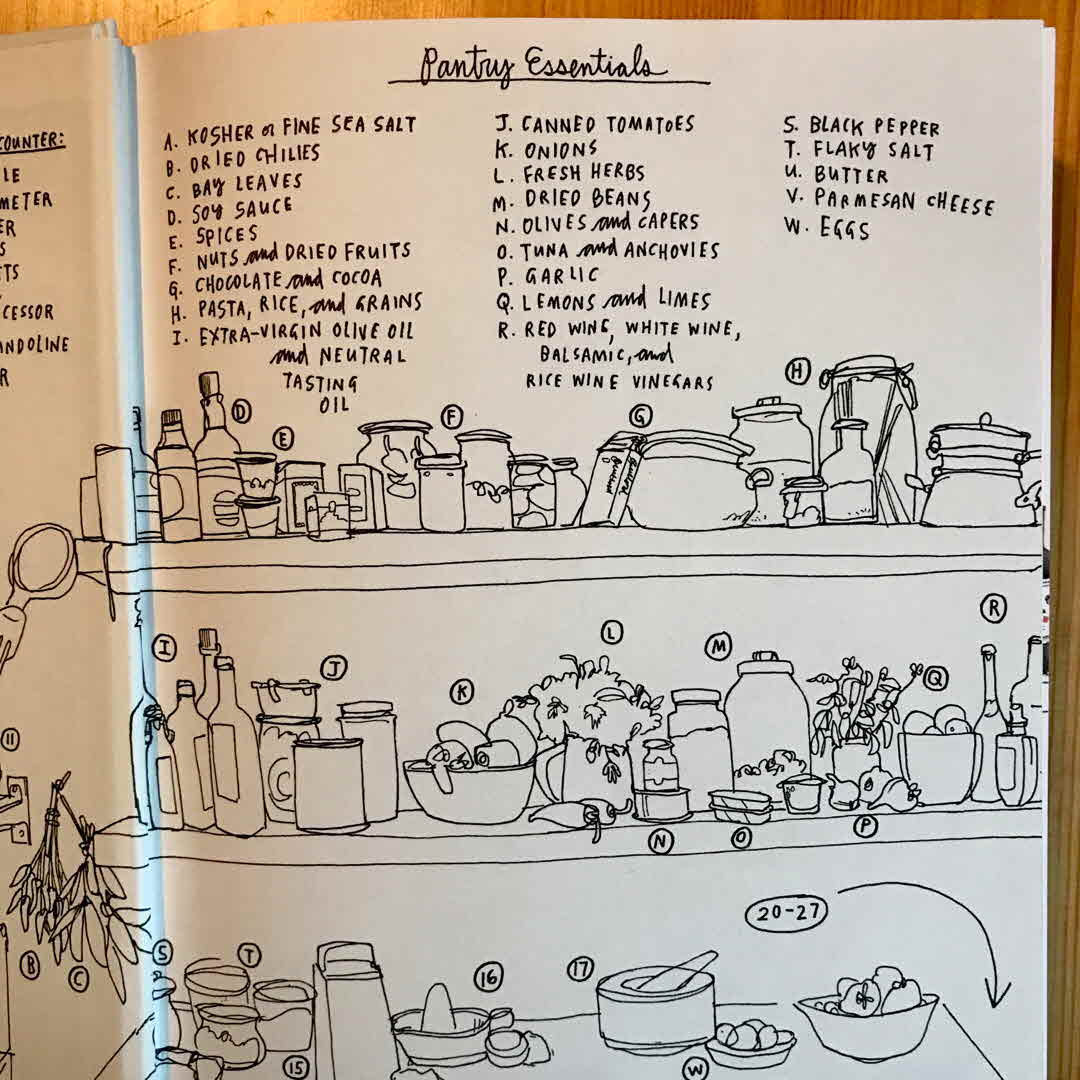 Pantry Essentials
COUNTER:
A. KOSHER or FINE SEA SALT
B. DRIED CHILIES
C. BAY LEAVES
D. SOY SAUCE
E. SPICES
F. NUTS and DRIED FRUITS
G. CHOCOLATE and COCOA
H. PASTA, RICE, and GRAINS
I. EXTRA-VIRGIN OLIVE OIL
and NEUTRAL
TASTING
OIL
J. CANNED TOMATOES
K. ONIONS
L. FRESH HERBS
M. DRIED BEANS
N. OLIVES and CAPERS
O. TUNA and ANCHOVIES
P. GARLIC
Q. LEMONS and LIMES
R. RED WINE, WHITE WINE,
BALSAMIC, and
RICE WINE VINEGARS
S. BLACK PEPPER
T. FLAKY SALT
U. BUTTER
V. PARMESAN CHEESE
W. EGGS
LE
METER
ER
S
TS
CESSOR
ANDOLINE
R
D
E
F
G
H
I
J
K
L
M
R
Q
N
O
P
11
B
C
S
T
20-27
16
17
15
W